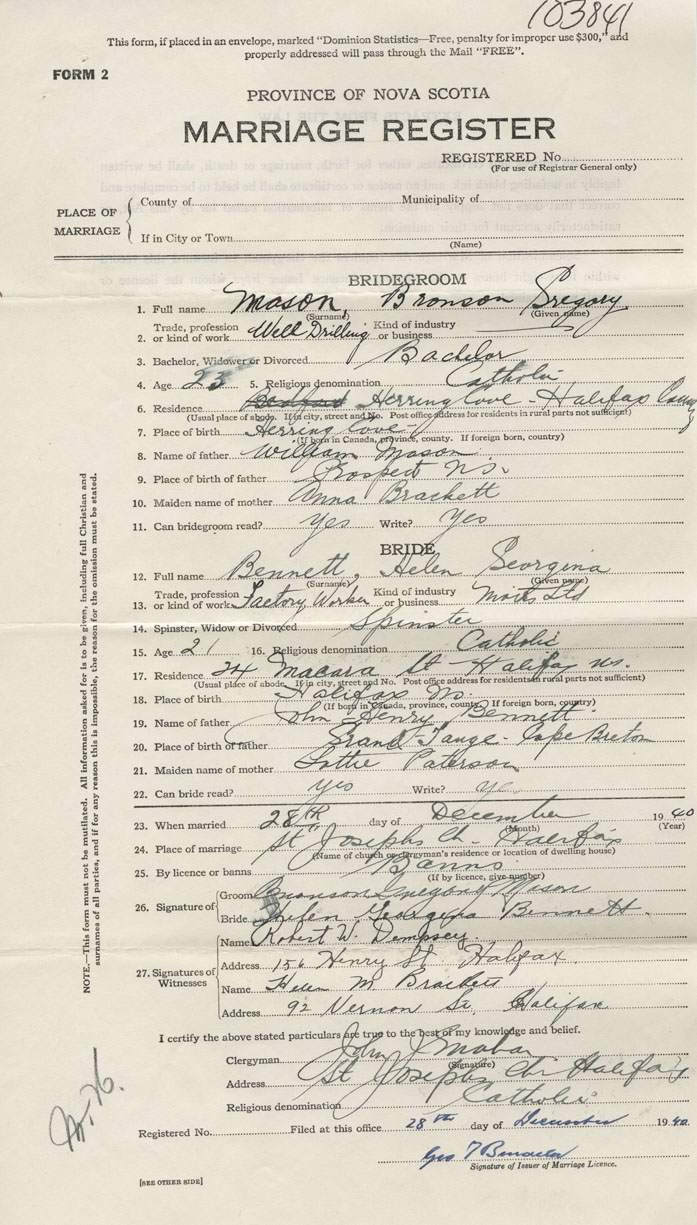 103841
This form, if placed in an envelope, marked "Dominion Statistics—Free, penalty for improper use $300," and
properly addressed will pass through the Mail "FREE".
FORM 2
PROVINCE OF NOVA SCOTIA
MARRIAGE REGISTER
REGISTERED No.
(For use of Registrar General only)
PLACE OF MARRIAGE
County of Municipality of
If in City or Town
(Name)
BRIDEGROOM
1. Full name Mason, Bronson Gregory
(Surname) (Given name)
2. Trade, profession or kind of work Well Drilling Kind of industry or business
3. Bachelor, Widower or Divorced Bachelor
4. Age 23 5. Religious denomination Catholic
6. Residence Herring Cove - Halifax County
(Usual place of abode. If in city, street and No. Post office address for residents in rural parts not sufficient)
7. Place of birth Herring Cove
(If born in Canada, province, county. If foreign born, country)
8. Name of father William Mason
9. Place of birth of father Prospect N.S.
10. Maiden name of mother Anna Brackett
11. Can bridegroom read? yes Write? yes
BRIDE
12. Full name Bennett, Helen Georgina
(Surname) (Given name)
13. Trade, profession or kind of work Factory Worker Kind of industry or business Moirs Ltd
14. Spinster, Widow or Divorced Spinster
15. Age 21 16. Religious denomination Catholic
17. Residence 24 Macara St - Halifax N.S.
(Usual place of abode. If in city, street and No. Post office address for residents in rural parts not sufficient)
18. Place of birth Halifax N.S.
(If born in Canada, province, county. If foreign born, country)
19. Name of father John Henry Bennett
20. Place of birth of father Grand Tange - Cape Breton
21. Maiden name of mother Lottie Paterson
22. Can bride read? yes Write? yes
23. When married 28th day of December 1940
(Month) (Year)
24. Place of marriage St Josephs Ch. Halifax
(Name of church or clergyman's residence or location of dwelling house)
25. By licence or banns Banns
(If by licence, give number)
26. Signature of Groom Bronson Gregory Mason
Bride Helen Georgina Bennett.
27. Signatures of Witnesses
Name Robert W. Dempsey.
Address 156 Henry St Halifax.
Name Helen M Brackett
Address 92 Vernon St, Halifax
I certify the above stated particulars are true to the best of my knowledge and belief.
Clergyman John J
(Signature)
Address St Josephs Ch. Halifax
Religious denomination Catholic
Registered No. Filed at this office 28th day of December 1940
Geo T
Signature of Issuer of Marriage Licence.
[SEE OTHER SIDE]
NOTE.—This form must not be mutilated. All information asked for is to be given, including full Christian and
surnames of all parties, and if for any reason this is impossible, the reason for the omission must be stated.